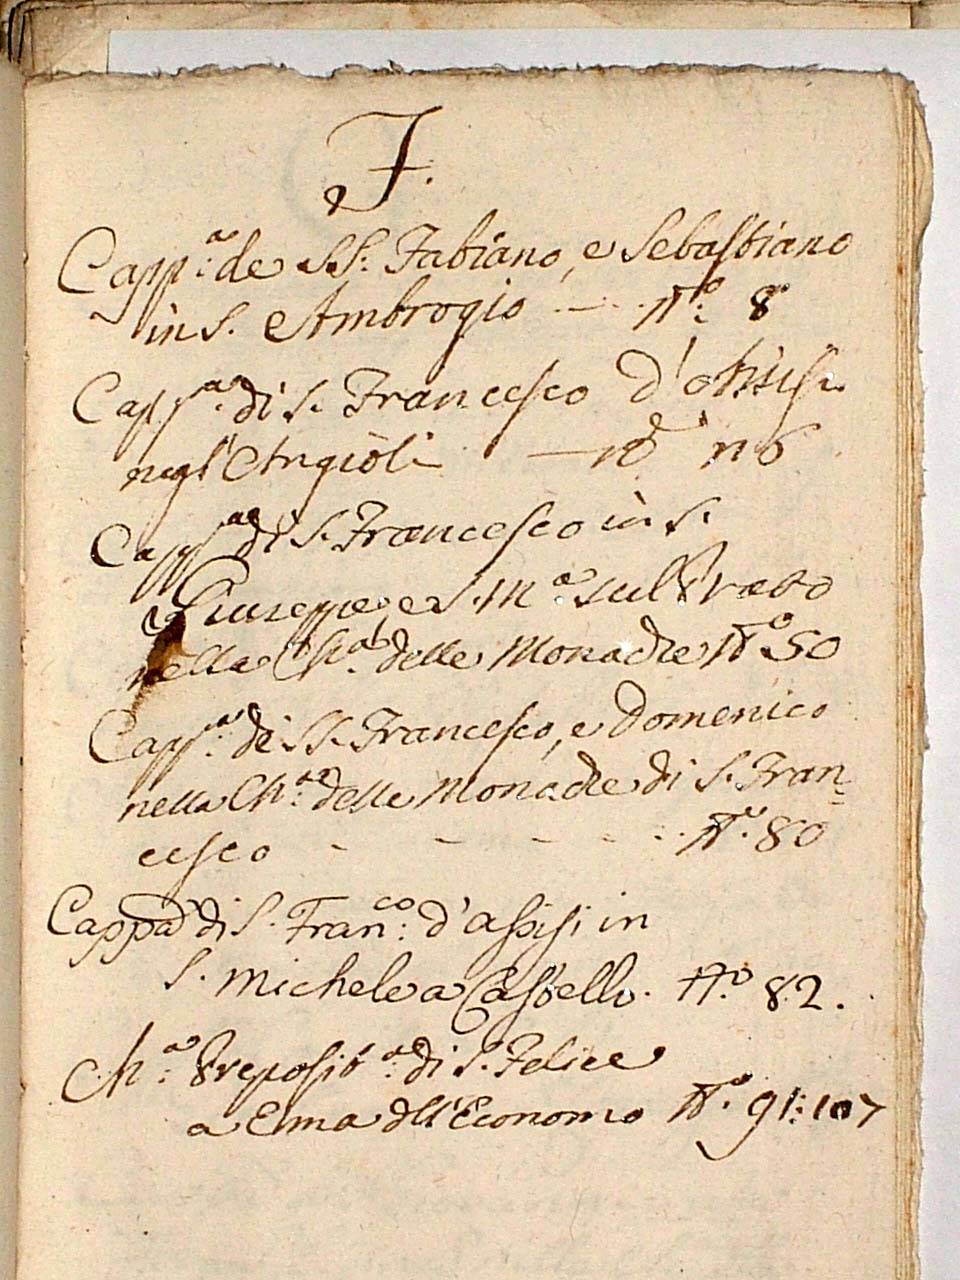 F.
Capp.a de SS. Fabiano, e Sebastiano
in S. Ambrogio — N.o 8
Capp.a di S. Francesco d'Assisi
negl'Angioli — N.o 16
Capp.a di S. Francesco in S.
Giuseppe e S. M.a sul Prato
nella Ch.a delle Monache N.o 50
Capp.a de SS. Francesco, e Domenico
nella Ch.a delle Monache di S. Fran=
cesco - - - - - N.o 80
Cappa di S. Fran.co d'Assisi in
S. Michele a Castello. N.o 82.
Ch.a Preposit.a di S. Felice
a Ema dell'Economo N.o 91:107